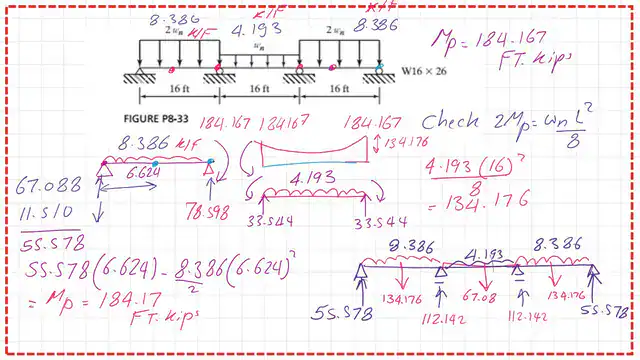 8.386 K/F 8.386
2wn K/F 4.193 2wn
wn
W16 × 26
16 ft 16 ft 16 ft
FIGURE P8-33
Mp = 184.167
FT. kips
8.386 K/F 184.167 184167 184.167
134.176
6.624
67.088
11.510
55.578
78.598
4.193
33.544 33.544
Check 2Mp = wn L²/8
4.193 (16)²/8
= 134.176
55.578(6.624) - 8.386/2 (6.624)²
= Mp = 184.17
FT. kips
8.386 4.193 8.386
134.176 67.08 134.176
55.578 112.142 112.142 55.578